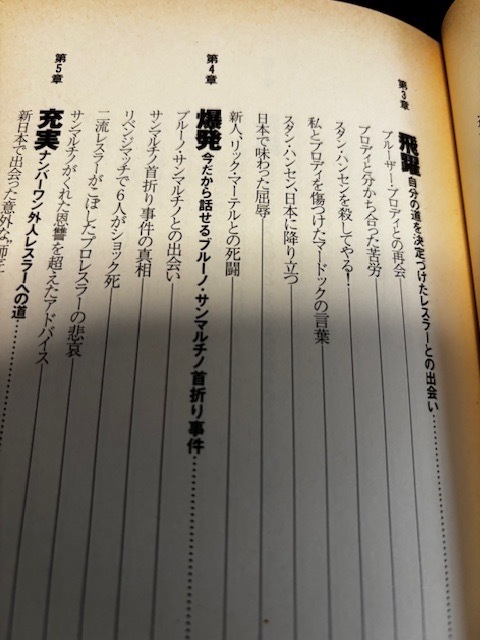 第3章
飛躍 自分の道を決定づけたレスラーとの出会い
ブルーザー・ブロディとの再会
ブロディと分かち合った苦労
スタン・ハンセンを殺してやる!
私とブロディを傷つけたマードックの言葉
スタン・ハンセン、日本に降り立つ
日本で味わった屈辱
新人、リック・マーテルとの死闘
第4章
爆発 今だから話せるブルーノ・サンマルチノ首折り事件
ブルーノ・サンマルチノとの出会い
サンマルチノ首折り事件の真相
リベンジマッチで6人がショック死
二流レスラーがこぼしたプロレスラーの悲哀
サンマルチノがくれた恩讐を超えたアドバイス
第5章
充実 ナンバーワン外人レスラーへの道
新日本で出会った意外な“師匠